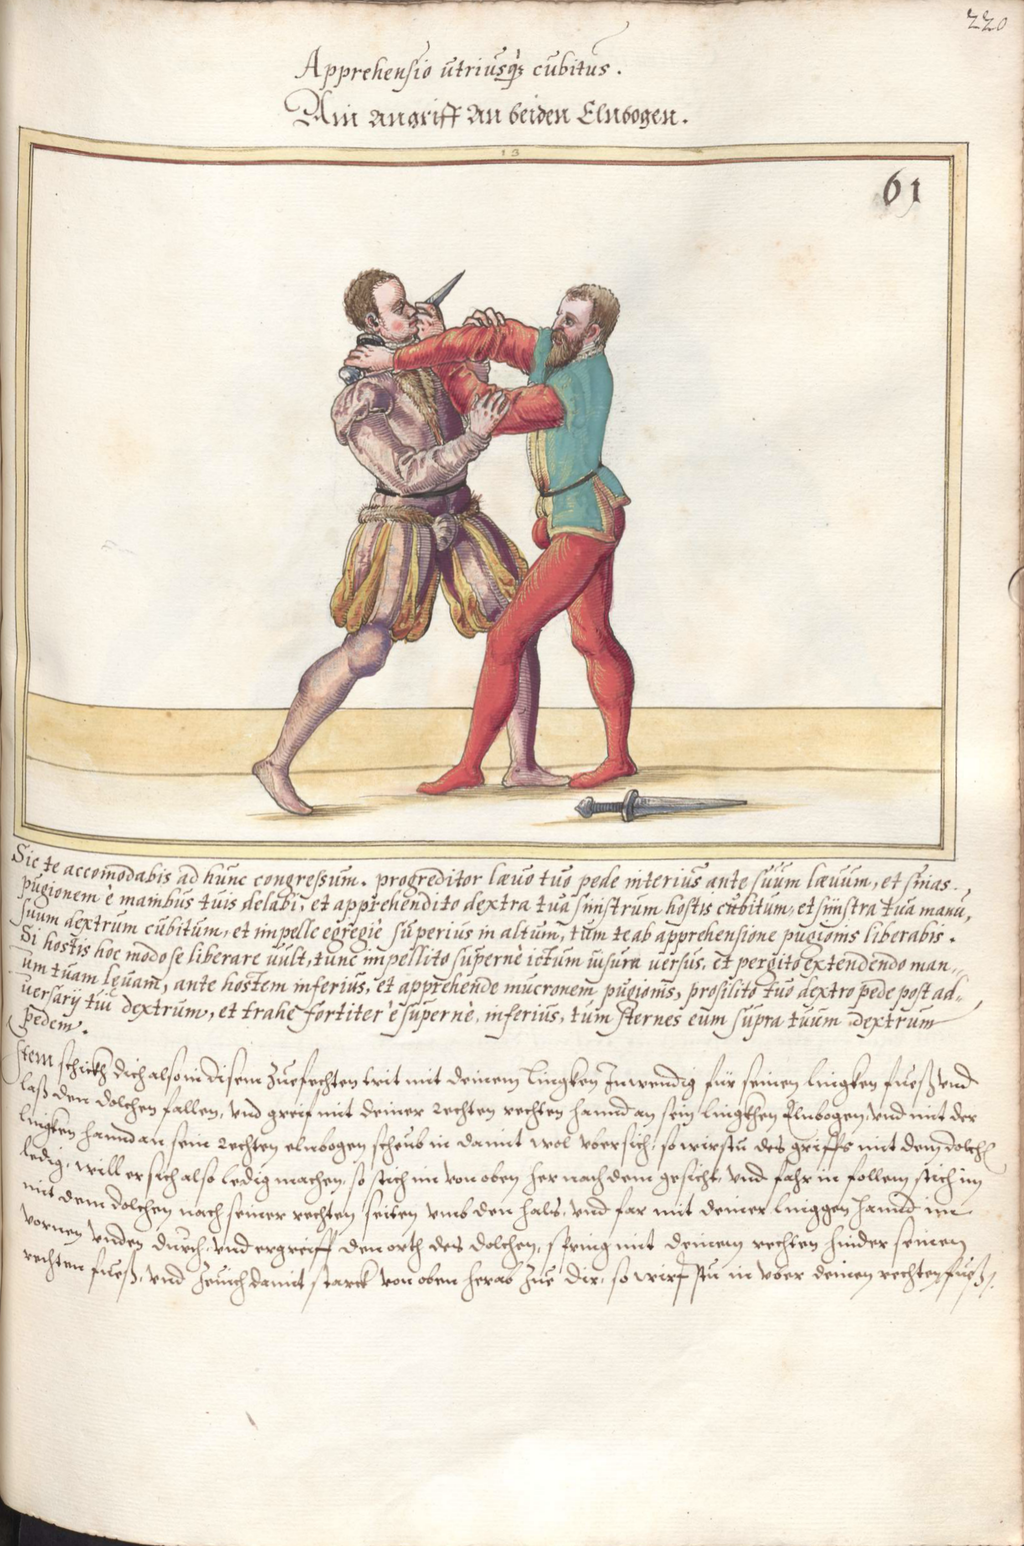 220
Apprehensio utriusq3 cubitus.
Ain angriff an beiden Elnbogen.
13
61
Sic te accomodabis ad hunc congressum. progreditor lævo tuo pede interius ante suum læuum, et sinas
pugionem è manibus tuis delabi, et apprehendito dextra tua sinistrum hostis cubitum, et sinistra tua manu,
suum dextrum cubitum, et impelle egregiè superius in altum, tum te ab apprehensione pugionis liberabis.
Si hostis hoc modo se liberare uult, tunc impellito supernè ictum uisum uersus, et pergito extendendo man-
um tuam leuam, ante hostem inferius, et apprehende mucronem pugionis, prosilito tuo dextro pede post ad-
uersarij tui dextrum, et trahe fortiter è supernè, inferius, tum sternes eum supra tuum dextrum
pedem.
Item schickh dich also in disem Zuefechten trit mit deinem lingken Inwendig für seinen lingken fuesß und
laß den dolchen fallen, und greif mit deiner rechten hannd an sein lingkhen Elnbogen, und mit der
lingken hannd an sein rechten elnbogen scheub in damit wol ubersich, so wirstu des griffs mit dem dolch
ledig, will er sich also ledig machen, so stich im von oben her nach dem gesicht, und fahr in follem stich im
mit dem dolchen nach seiner rechten seiten umb den hals, und far mit deiner linggen hannd im
vornen unden durch, und ergreiff den orth des dolchen, spring mit deinem rechten hinder seinen
rechten fueß, und zeuch damit starck von oben herab zue dir, so wirfstu in uber deinen rechten fueß.